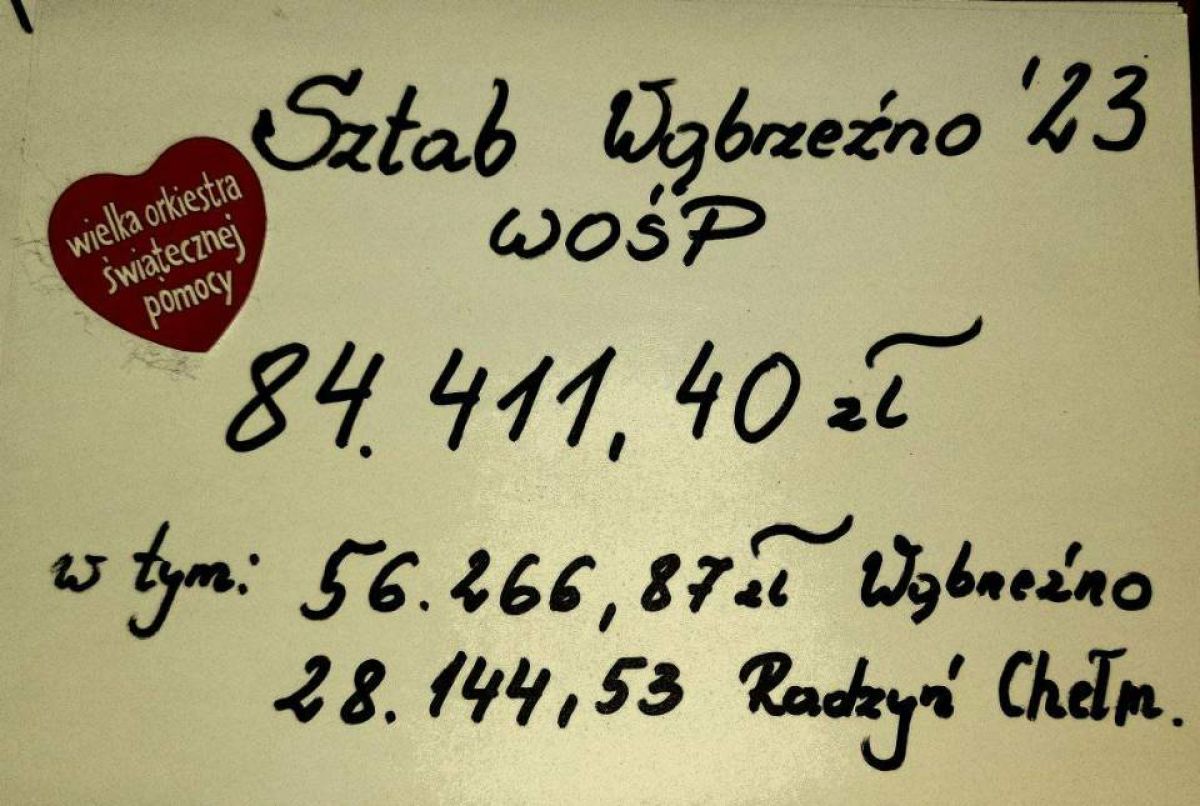 Sztab Wąbrzeźno '23
WOŚP
wielka orkiestra
świątecznej
pomocy
84.411,40 zł
w tym: 56.266,87 zł Wąbrzeźno
28.144,53 Radzyń Chełm.